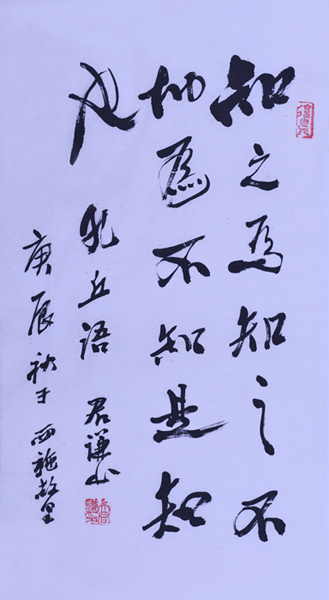 知之為知之不
知為不知是知
也 孔丘语 君谦书
庚辰秋于西施故里